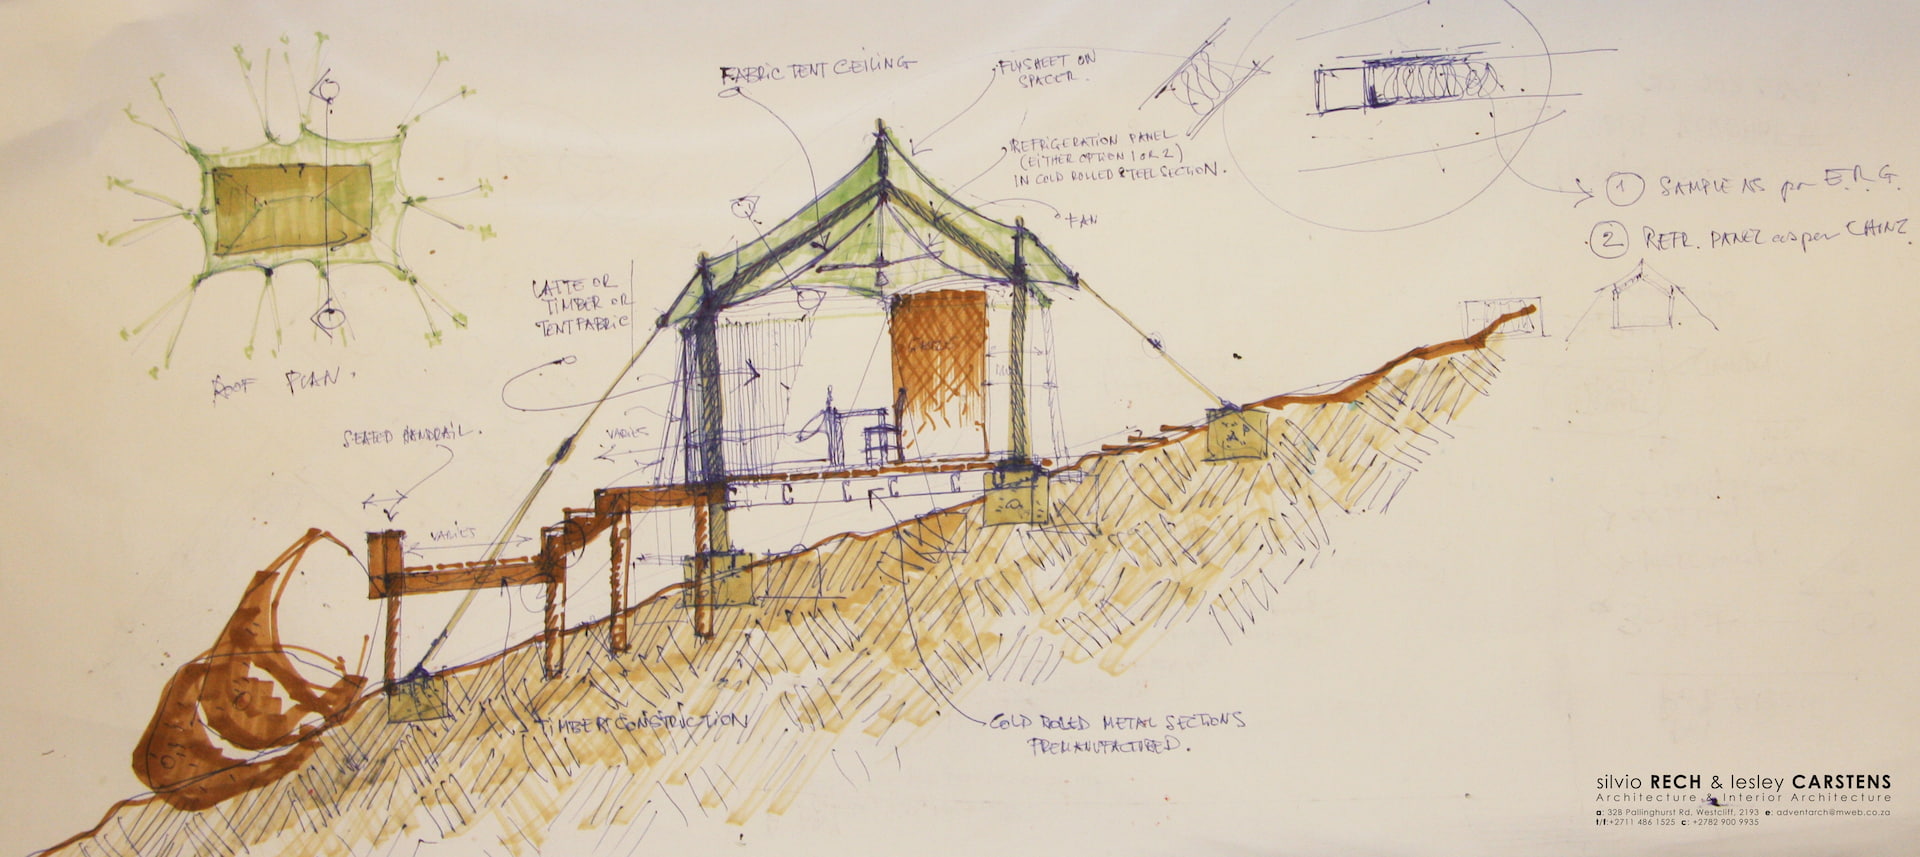 FABRIC TENT CEILING
FLYSHEET ON
SPACER.
REFRIGERATION PANEL
(EITHER OPTION 1 OR 2)
IN COLD ROLLED STEEL SECTION.
FAN
1 SAMPLE AS per E.R.G.
2 REFR. PANEL as per
LATTE OR
TIMBER OR
TENT FABRIC
ROOF PLAN.
SEATED HANDRAIL.
VARIES
VARIES
TIMBER CONSTRUCTION
COLD ROLED METAL SECTIONS
PREMANUFACTURED.
silvio RECH & lesley CARSTENS
Architecture & Interior Architecture
a: 328 Pallinghurst Rd, Westcliff, 2193 e: adventarch@mweb.co.za
t/f:+2711 486 1525 c: +2782 900 9935